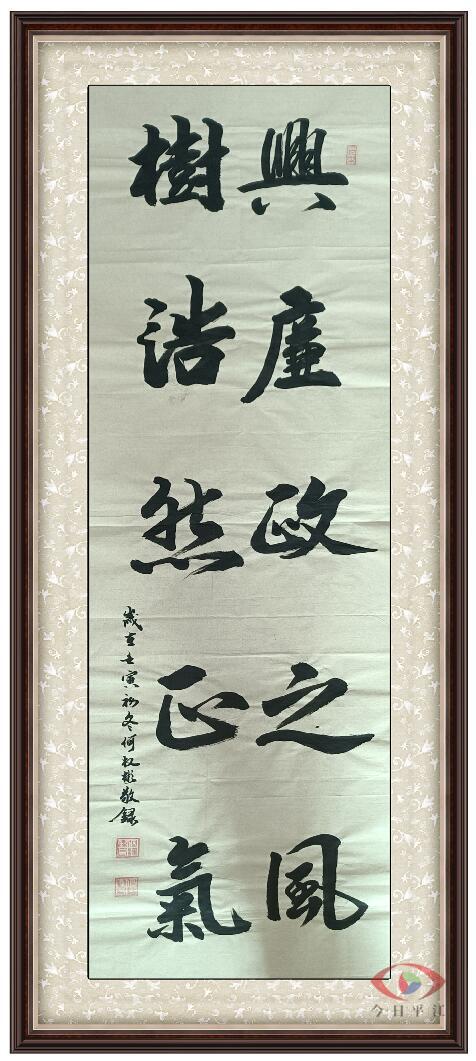 興廉政之風
樹浩然正氣
歲在壬寅初冬何权彬敬録
今日平江